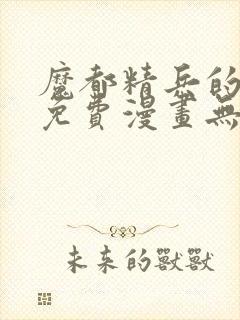 魔都精兵的
免費漫畫無
未来的獸獸